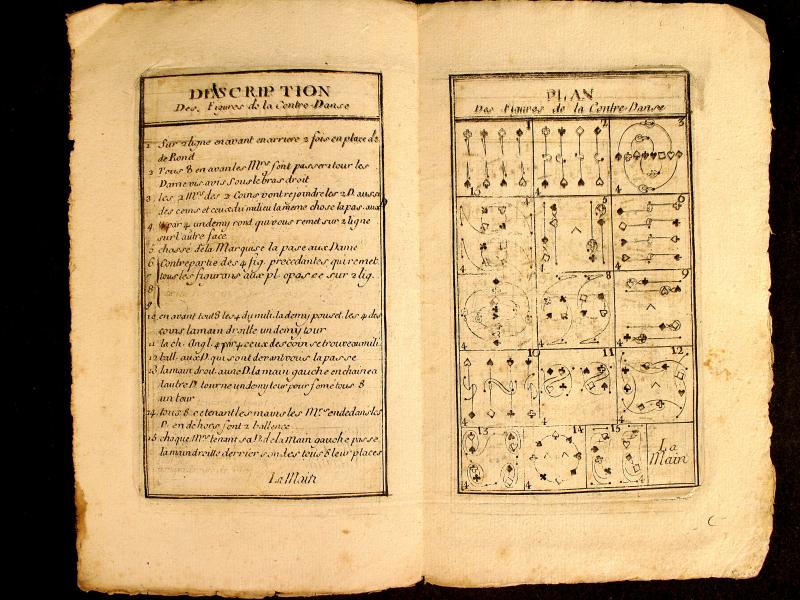 DESCRIPTION
Des Figures de la Contre-Danse
1 Sur 2 ligne en avant en arriere 2 fois en place d2
de Rond
2 Tous 8 en avan les Mrs font passer 1 tour les
Dame vis avis sous le bras droit
3 les 2 Mrs des 2 Coins vont rejoindre les 2 D. aussi
des coins et ceux du milieu la meme chose la pas. aux
4 par 4 un demy rond qui vous remet sur 2 ligne
sur l'autre face
5 chassé de la Marquise la pase aux Dame
6 Contrepartie des 4 fig. precedantes qui remet
7 tous les figurans aux pl. opasee sur 2 lig.
8
9
10 en avant tout 8 les 4 du mili. la demy pouset. les 4 des
coins la main droitte un demy tour
11 la ch. Angl. 4 par 4 ceux des coin se trouve au mili.
12 ball. aux D. qui sont devant vous la passe
13 la main droit. a une D. la main gauche en chaine a
l'autre D. tourne un demy tour pour forme tous 8
un tour
14 tous 8 se tenant les mains les Mrs en dedans les
D. en dehors font 2 ballence
15 chaque Mrs tenant sa D. de la main gauche passe
la main droitte derrier son des tous 8 leur places
La Main
PLAN
Des Figures de la Contre-Danse
1 2 3
15 4 4
6
4 4 4
8 9
4 4 4
10 11 12
4 4 4
13 14 15
4 4 4
La
Main